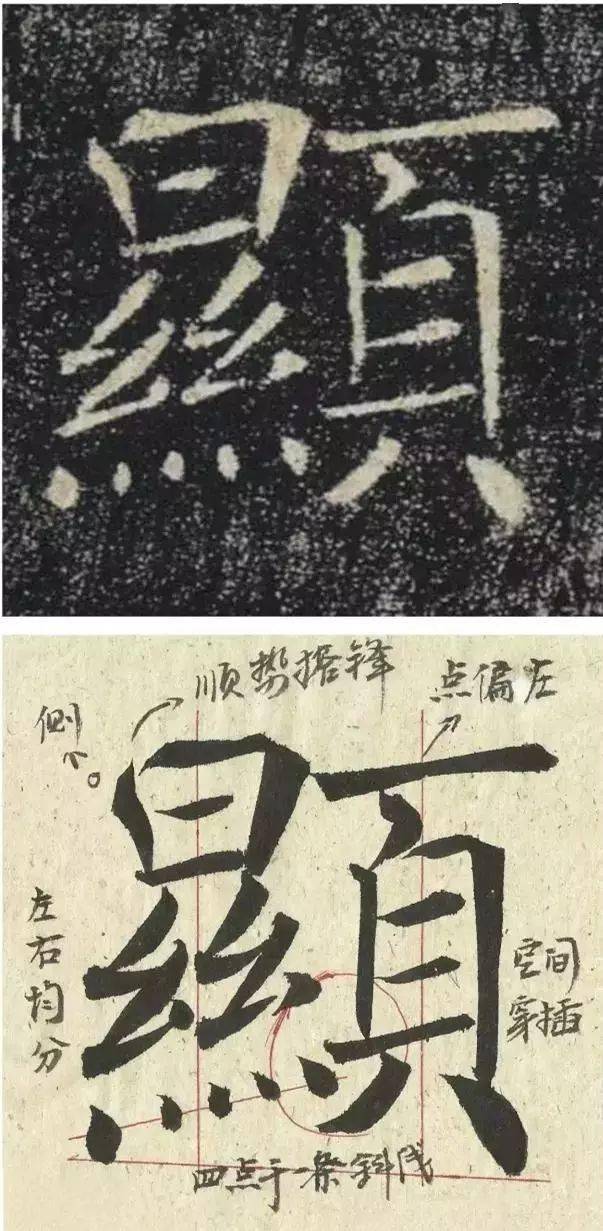 顯
顺势搭锋
点偏左
侧下。
顯
左右均分
空间
穿插
四点于一条斜线